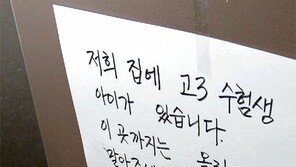 저희 집에 고3 수험생
아이가 있습니다.
이 곳까지는 올라